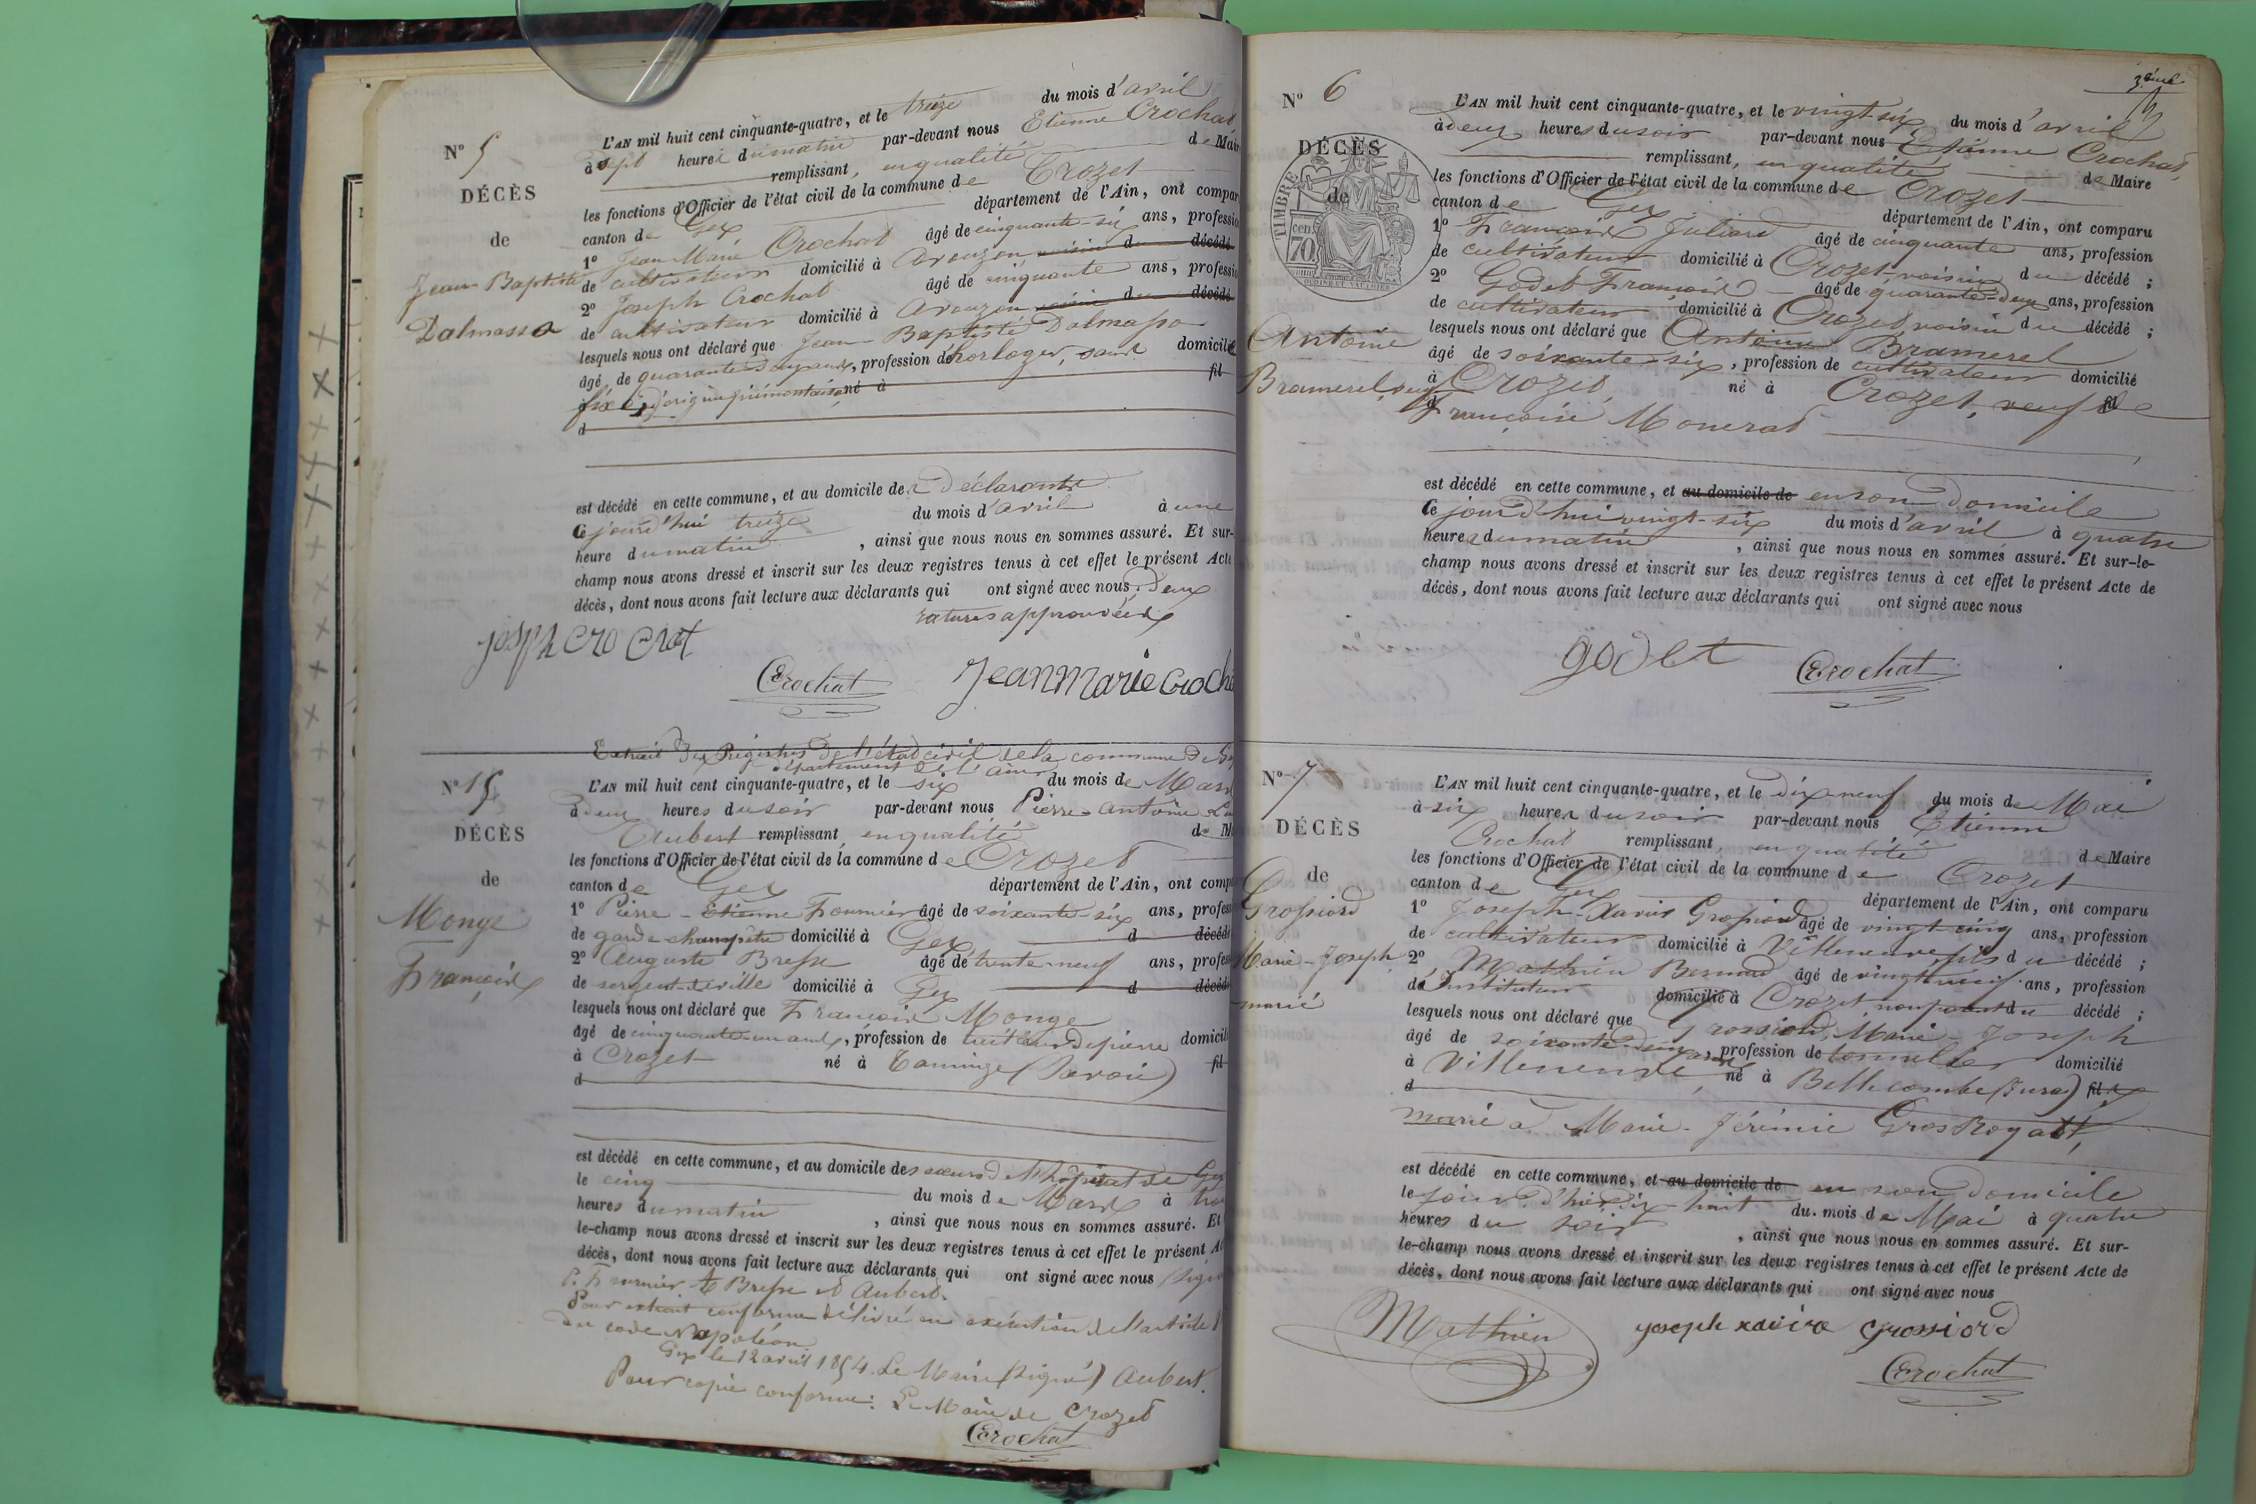 N° 5
DÉCÈS
de
Jean-Baptiste
Dalmasso
L'AN mil huit cent cinquante-quatre, et le treize du mois d'avril
à sept heures du matin par-devant nous Etienne Crochat
remplissant, en qualité de Mair
les fonctions d'Officier de l'état civil de la commune de Crozet
canton de Gex département de l'Ain, ont compar
1° Jean Marie Crochat âgé de cinquante-six ans, professio
de cultivateur domicilié à Avouzon voisin du décédé
2° Joseph Crochat âgé de cinquante ans, professio
de cultivateur domicilié à Avouzon voisin du décédé
lesquels nous ont déclaré que Jean-Baptiste Dalmasso
âgé de quarante-deux ans, profession de horloger, sans domicile
fixe, d'origine piémontaise, né à fil
d
est décédé en cette commune, et au domicile des déclarants
Ce jourd'hui treize du mois d'avril à une
heure du matin, ainsi que nous nous en sommes assuré. Et sur-
champ nous avons dressé et inscrit sur les deux registres tenus à cet effet le présent Acte
décès, dont nous avons fait lecture aux déclarants qui ont signé avec nous. Deux
ratures approuvées
Joseph Cro Chat
Crochat Jean Marie Crocha
Extrait des Registres de l'état civil de la commune de Gex
département de l'Ain
N° 15
DÉCÈS
de
Monge
François
L'AN mil huit cent cinquante-quatre, et le six du mois de Mars
à deux heures du soir par-devant nous Pierre-Antoine
Aubert remplissant en qualité de M
les fonctions d'Officier de l'état civil de la commune de Crozet
canton de Gex département de l'Ain, ont comp
1° Pierre-Etienne Fournier âgé de soixante-six ans, profess
de garde champêtre domicilié à Gex d décédé
2° Auguste Bresse âgé de trente-neuf ans, profess
de sergent de ville domicilié à Gex d décédé
lesquels nous ont déclaré que François Monge
âgé de cinquante-un ans, profession de tailleur de pierre domicili
à Crozet né à Taninge (Savoie) fil
d
est décédé en cette commune, et au domicile des sœurs de l'hôpital de Gex
le cinq du mois de Mars à trois
heures du matin, ainsi que nous nous en sommes assuré. Et
le-champ nous avons dressé et inscrit sur les deux registres tenus à cet effet le présent Ac
décès, dont nous avons fait lecture aux déclarants qui ont signé avec nous (signé
P. Fournier, A Bresse et Aubert.
Pour extrait conforme délivré en exécution de l'article
du code Napoléon
Gex le 12 avril 1854. Le Maire (signé) Aubert.
Pour copie conforme: Le Maire de Crozet
Crochat
3ème
N° 6
DÉCÈS
de
TIMBRE
70 cen.
Antoine
Bramerel, veuf
L'AN mil huit cent cinquante-quatre, et le vingt-six du mois d'avril
à deux heures du soir par-devant nous Etienne Crochat,
remplissant, en qualité de Maire
les fonctions d'Officier de l'état civil de la commune de Crozet
canton de Gex département de l'Ain, ont comparu
1° François Juliard âgé de cinquante ans, profession
de cultivateur domicilié à Crozet voisin du décédé ;
2° Godet François âgé de quarante-deux ans, profession
de cultivateur domicilié à Crozet voisin du décédé ;
lesquels nous ont déclaré que Antoine Bramerel
âgé de soixante-six, profession de cultivateur domicilié
à Crozet, né à Crozet, veuf de fil
d Françoise Monerat
est décédé en cette commune, et au domicile de en son domicile
Ce jourd'hui vingt-six du mois d'avril à quatre
heures du matin, ainsi que nous nous en sommes assuré. Et sur-le-
champ nous avons dressé et inscrit sur les deux registres tenus à cet effet le présent Acte de
décès, dont nous avons fait lecture aux déclarants qui ont signé avec nous
godet Crochat
N° 7
DÉCÈS
de
Grossiord
Marie-Joseph
marié
L'AN mil huit cent cinquante-quatre, et le dix-neuf du mois de Mai
à six heures du soir par-devant nous Etienne
Crochat remplissant, en qualité de Maire
les fonctions d'Officier de l'état civil de la commune de Crozet
canton de Gex département de l'Ain, ont comparu
1° Joseph-Xavier Grossiord âgé de vingt-cinq ans, profession
de cultivateur domicilié à Villeneuve fils du décédé ;
2° Mathieu Bernard âgé de vingt-neuf ans, profession
d'instituteur domicilié à Crozet, non parent du décédé ;
lesquels nous ont déclaré que Grossiord, Marie-Joseph
âgé de soixante-deux ans, profession de tonnelier domicilié
à Villeneuve, né à Bellecombe (Jura) fil
d
marié à Marie-Jérémie Gros Royatt,
est décédé en cette commune, et au domicile de en son domicile
le jour d'hier dix-huit du mois de Mai à quatre
heures du soir, ainsi que nous nous en sommes assuré. Et sur-
le-champ nous avons dressé et inscrit sur les deux registres tenus à cet effet le présent Acte de
décès, dont nous avons fait lecture aux déclarants qui ont signé avec nous
Mathieu joseph xavier grossiord
Crochat